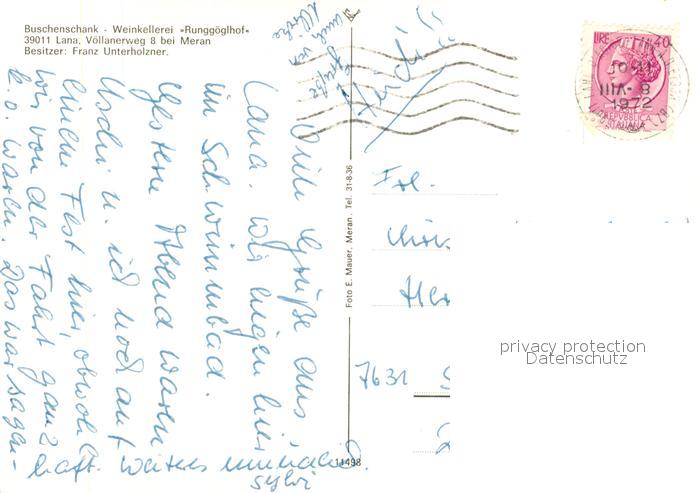 Buschenschank - Weinkellerei «Runggöglhof»
39011 Lana, Völlanerweg 8 bei Meran
Besitzer: Franz Unterholzner.
Viele Grüße aus
Lana. Wir liegen hier
im Schwimmbad.
Gestern Abend waren
Uschi u. ich noch auf
einem Fest hier, obwohl
wir von der Fahrt ganz
k.o. waren. Das war sagen-
haft. Weiteres mündlich.
Sylvi
auch von
Grüße
Foto E. Mauer, Meran, Tel. 31-8-36
11498
LIRE 40
VIII - 8
1972
REPUBBLICA
ITALIANA
Frl.
7631
privacy protection
Datenschutz